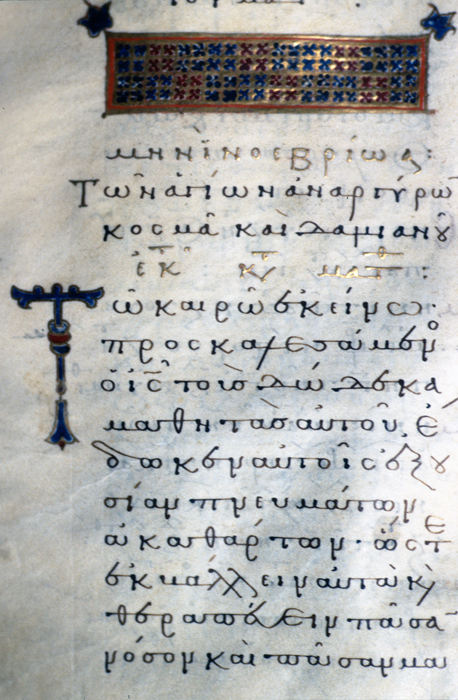 μηνὶ νοεβρίω α:
Τῶν ἁγίων ἀναργύρω
κοσμᾶ καὶ δαμιανοῦ
ἐκ τ κ μτθ :
Τῶ καιρῶ ἐκείνω·
προσκαλεσάμενος
ὁ ις τοὺς δώδεκα
μαθητὰς αὐτοῦ. ἔ
δωκεν αὐτοῖς ἐξου
σίαν πνευμάτων
ἀκαθάρτων· ὥστε
ἐκβάλλειν αὐτὰ κὶ
θεραπεύειν πᾶσα
νόσον καὶ πᾶσαν μα